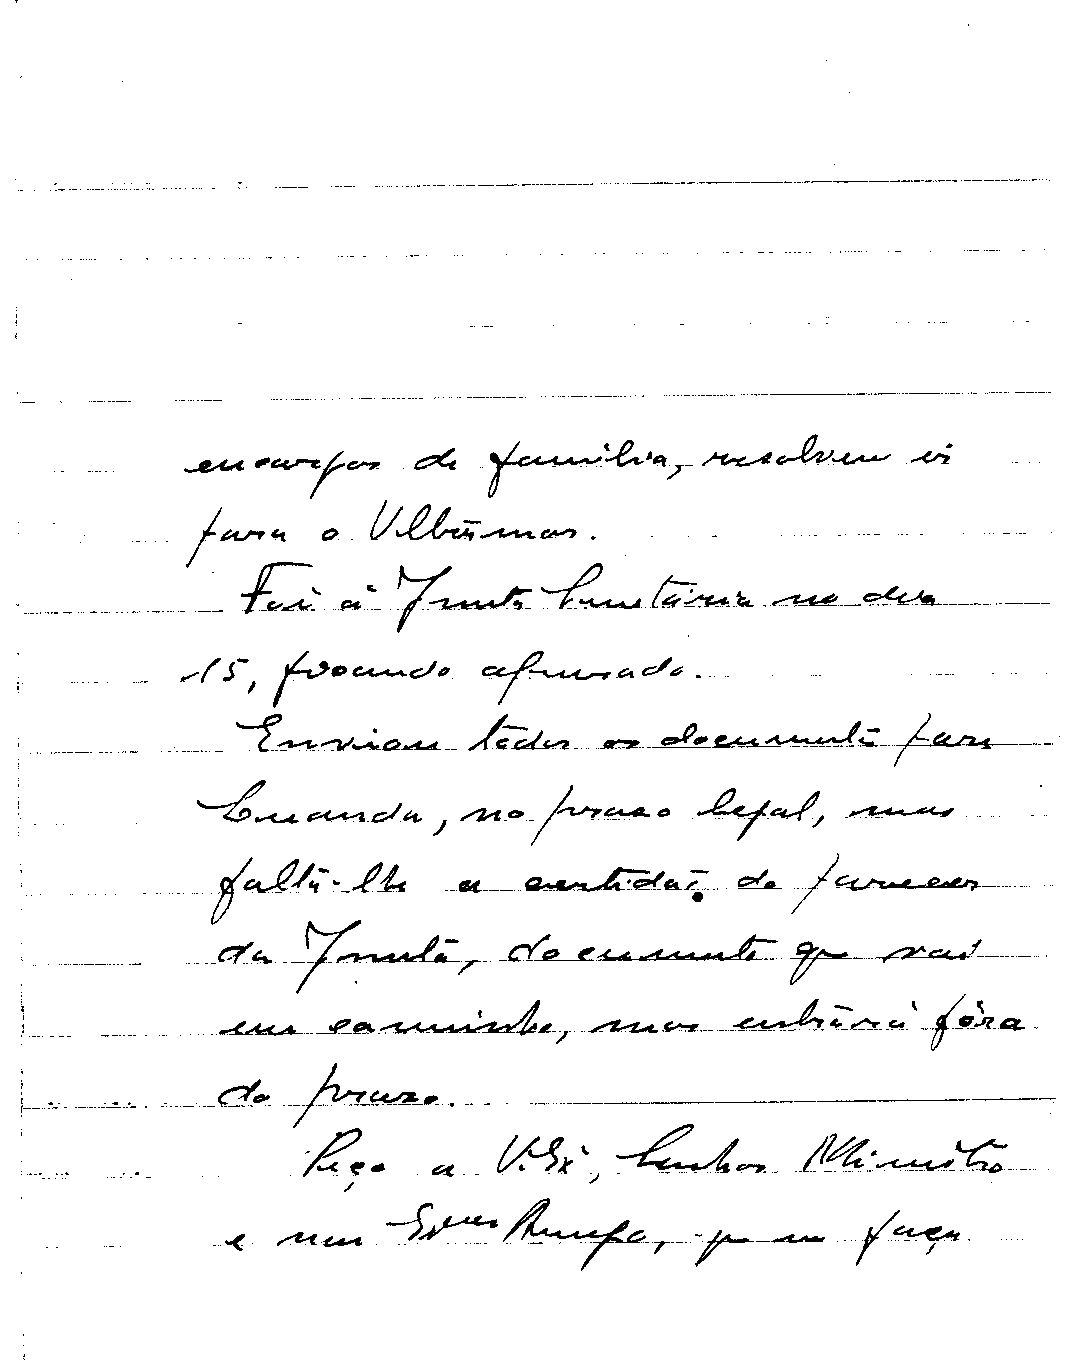 encargos de família, resolveu ir
para o Ultramar.
Foi à Junta Sanitária no dia
15, ficando apurado.
Enviou todos os documentos para
Luanda, no prazo legal, mas
falta-lhe a certidão do parecer
da Junta, documento que vai
em caminho, mas entrará fóra
do prazo.
Peço a V. Exª, Senhor Ministro
e meu Exmo Amigo, que me faça